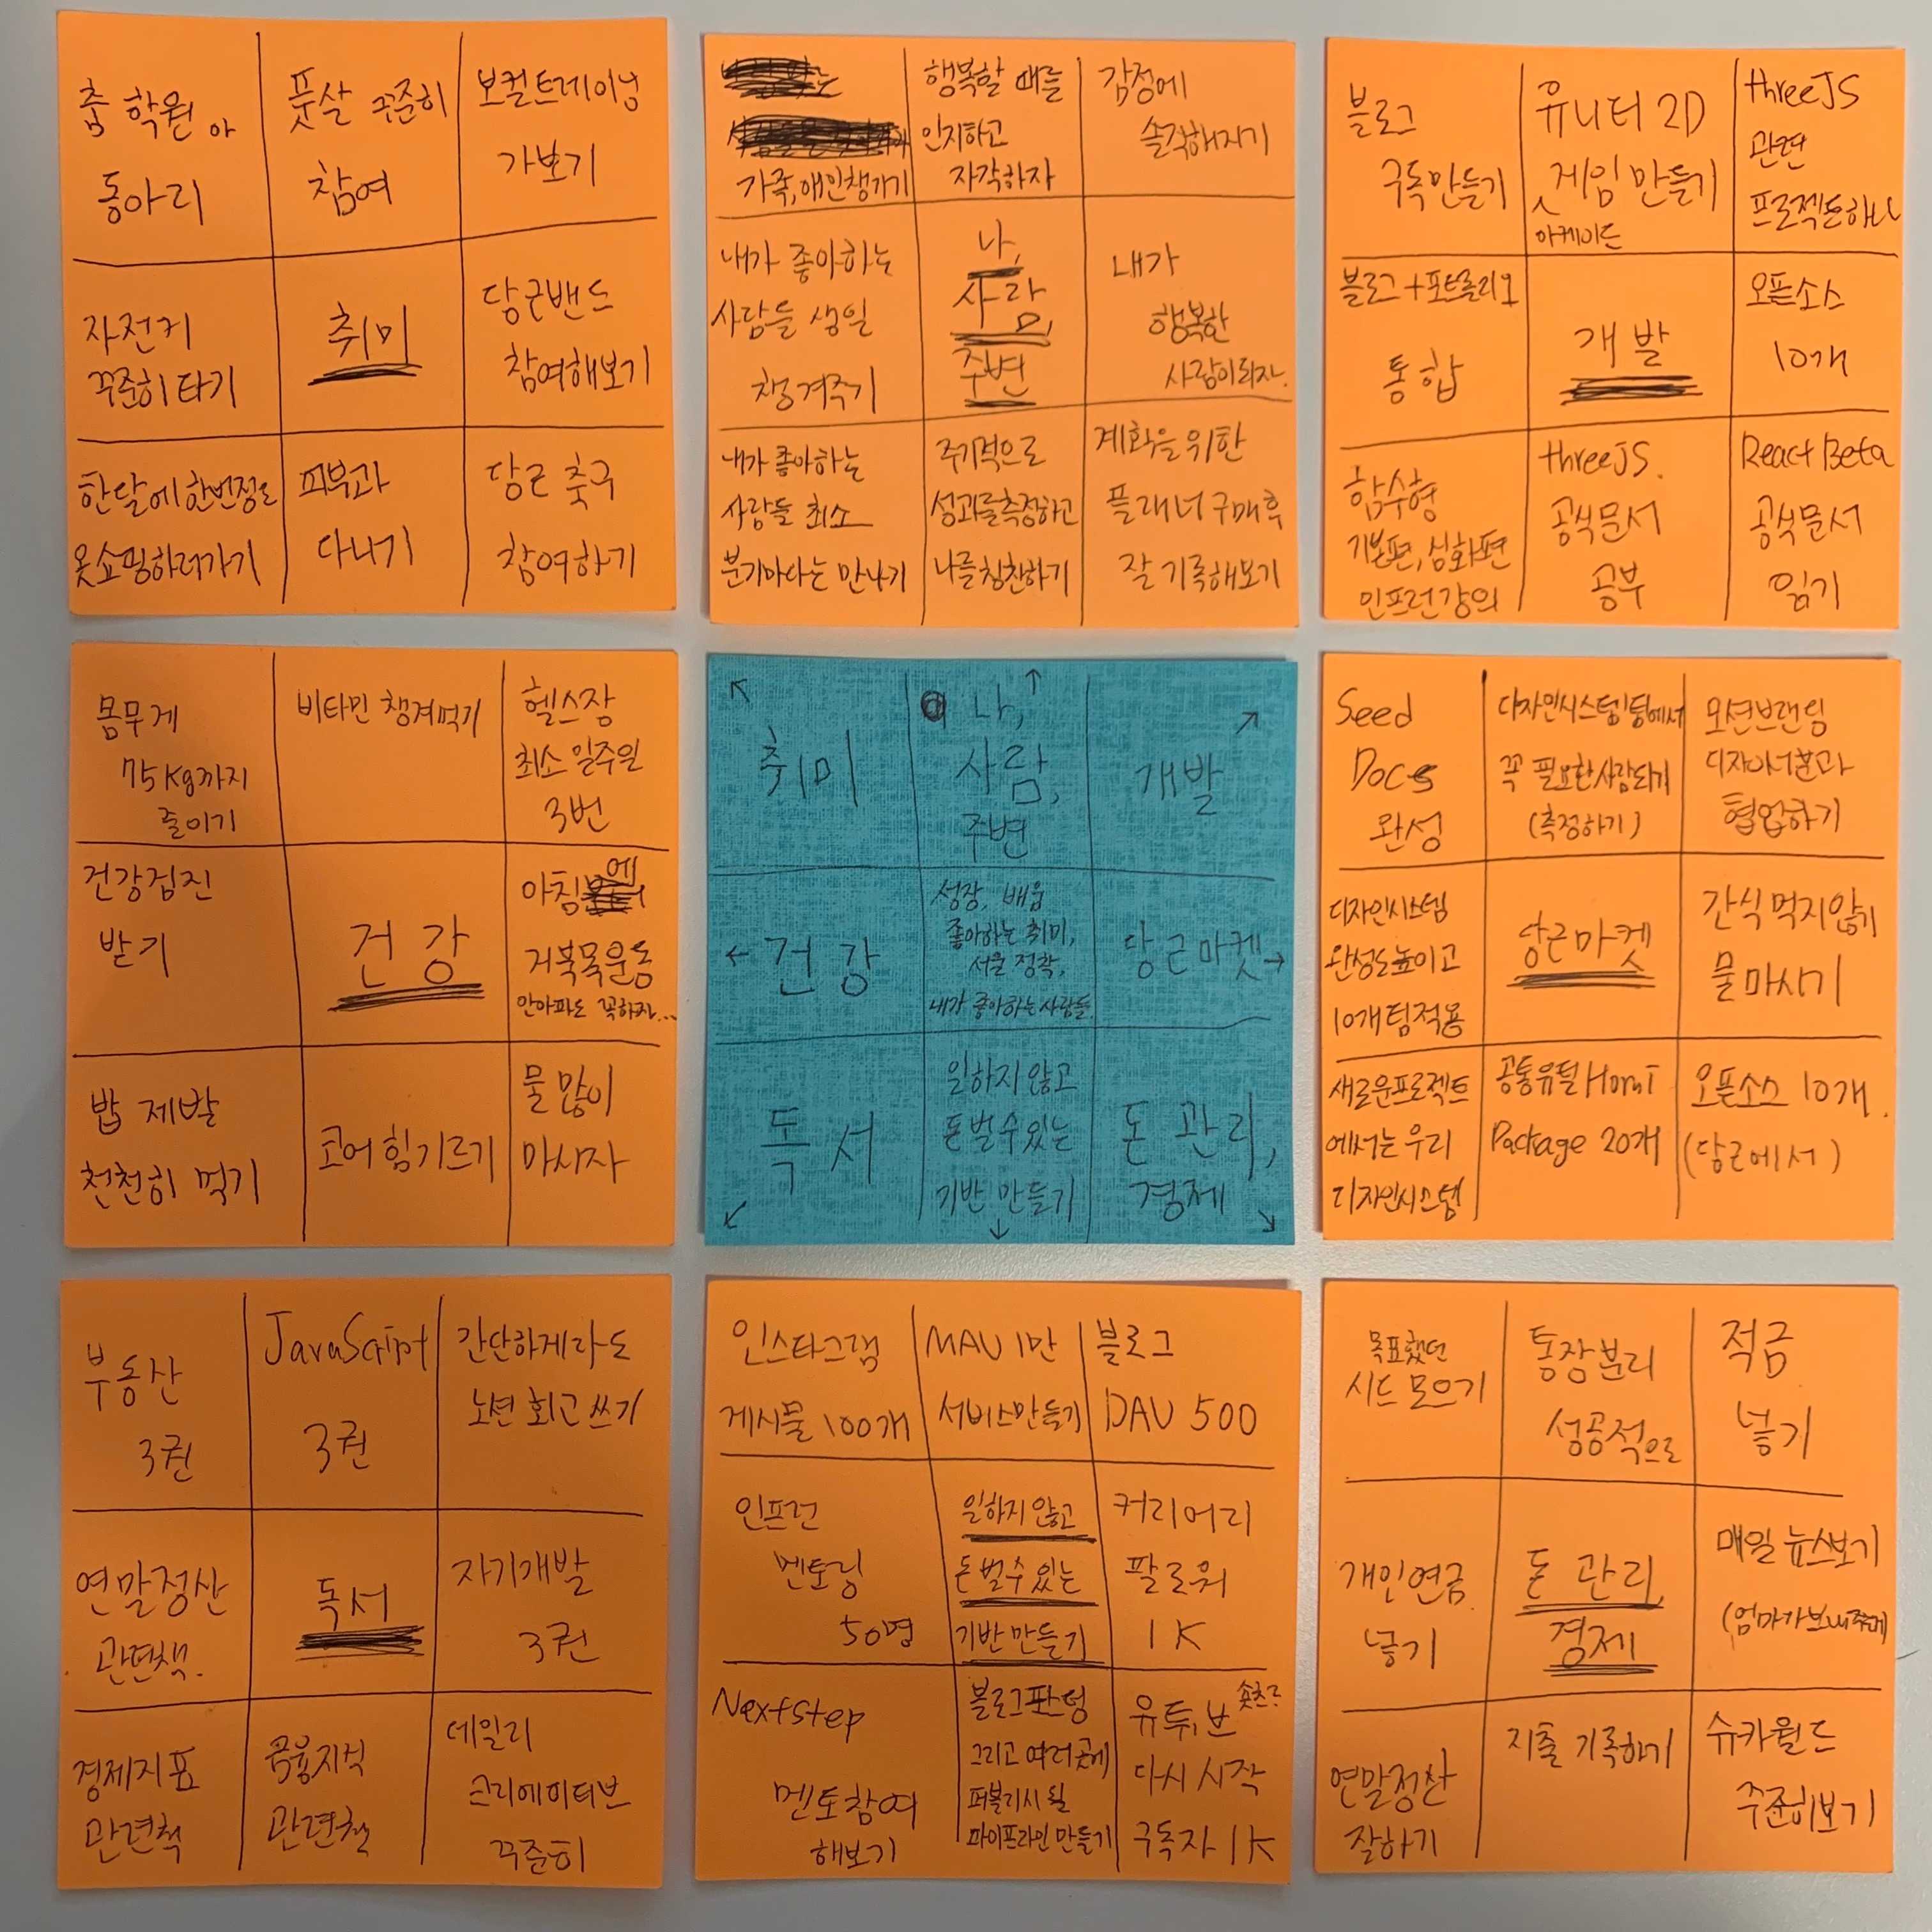 춤 학원 아
동아리
풋살 꾸준히
참여
보컬트레이닝
가보기
자전거
꾸준히 타기
취미
당근밴드
참여해보기
한달에 한번정도
옷쇼핑하러가기
피부과
다니기
당근 축구
참여하기
가족, 애인챙기기
행복할 때를
인지하고
자각하자
감정에
솔직해지기
내가 좋아하는
사람들 생일
챙겨주기
나,
사람,
주변
내가
행복한
사람이되자.
내가 좋아하는
사람들 최소
분기마다는 만나기
주기적으로
성과를측정하고
나를칭찬하기
계획을 위한
플래너 구매후
잘 기록해보기
블로그
구독만들기
유니티 2D
게임 만들기
아케이드
threeJS
관련
프로젝트하나
블로그+포트폴리오
통합
개발
오픈소스
10개
함수형
기본편, 심화편
인프런강의
threeJS.
공식문서
공부
React Beta
공식문서
읽기
몸무게
75kg까지
줄이기
비타민 챙겨먹기
헬스장
최소 일주일
3번
건강검진
받기
건강
아침에
거북목운동
안아파도 꼭하자...
밥 제발
천천히 먹기
코어힘기르기
물 많이
마시자
취미
나,
사람,
주변
개발
건강
성장, 배움
좋아하는 취미,
서울 정착,
내가 좋아하는사람들.
당근마켓
독서
일하지 않고
돈벌수있는
기반 만들기
돈 관리,
경제
Seed
Docs
완성
디자인시스템팀에서
꼭 필요한사람되기
(측정하기)
모션브랜딩
디자이너분과
협업하기
디자인시스템
완성도높이고
10개팀적용
당근마켓
간식먹지않기
물마시기
새로운프로젝트
에서는우리
디자인시스템
공통유틸
Package 20개
오픈소스 10개.
(당근에서)
부동산
3권
JavaScript
3권
간단하게라도
노션 회고 쓰기
연말정산
관련책.
독서
자기개발
3권
경제지표
관련책
금융지식
관련책
데일리
크리에이티브
꾸준히
인스타그램
게시물 100개
MAU 1만
서비스만들기
블로그
DAU 500
인프런
멘토링
50명
일하지 않고
돈벌수있는
기반만들기
커리어리
팔로워
1K
Nextstep
멘토참여
해보기
블로그펀딩
그리고 여러곳에
퍼블리시 될
파이프라인만들기
유튜브 숏츠로
다시 시작
구독자 1K
목표했던
시드 모으기
통장분리
성공적으로
적금
넣기
개인연금
넣기
돈 관리,
경제
매일 뉴스보기
(엄마가보내주는거)
연말정산
잘하기
지출 기록하기
슈카월드
꾸준히보기